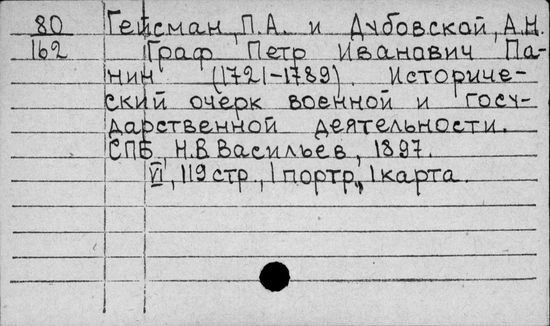 80 Гейсман, П.А. и Дубовской, А.Н.
162 Граф Петр Иванович Па-
нин (1721-1789). Историче-
ский очерк военной и госу-
дарственной деятельности.
СПБ, Н.В. Васильев, 1897.
VI, 119 стр., 1 портр., 1 карта.